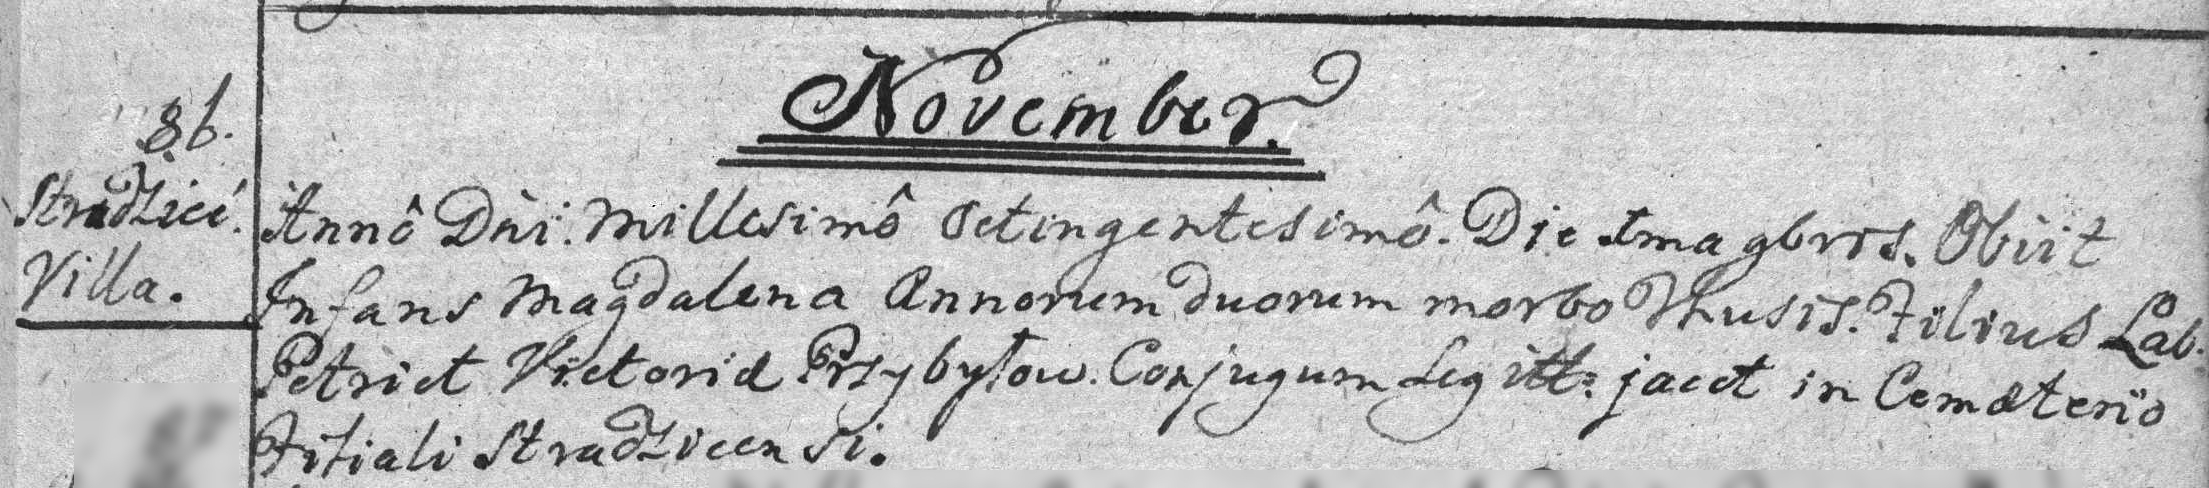 November.
86.
Stradzice.
Villa.
Annô Dñi. Millesimô Octingentesimô. Die 1ma 9bris. Obiit
Infans Magdalena Annorum duorum morbo Thusis. Filius Lab.
Petri et Victoriæ Przybyłow. Conjugum Legitt: jacet in Cemæterio
Filiali Stradzicensi.